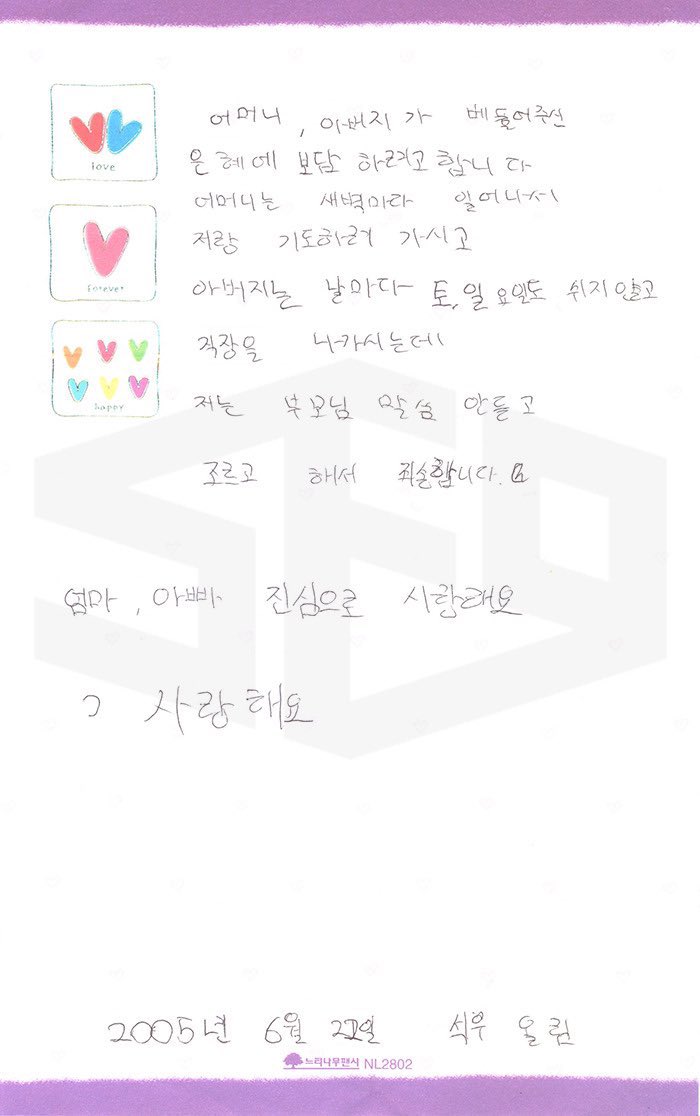 love
forever
happy
어머니, 아버지가 베들어주신
은혜에 보담 하려고 합니다
어머니는 새벽마다 일어나서
저랑 기도하러 가시고
아버지는 날마다 토,일 요일도 쉬지 안고
직장을 나가시는데
저는 부모님 말씀 안들고
조르고 해서 죄송합니다.
엄마, 아빠 진심으로 사랑해요
사랑해요
2005년 6월 일 석우 올림
느리나무팬시 NL2802
SF9